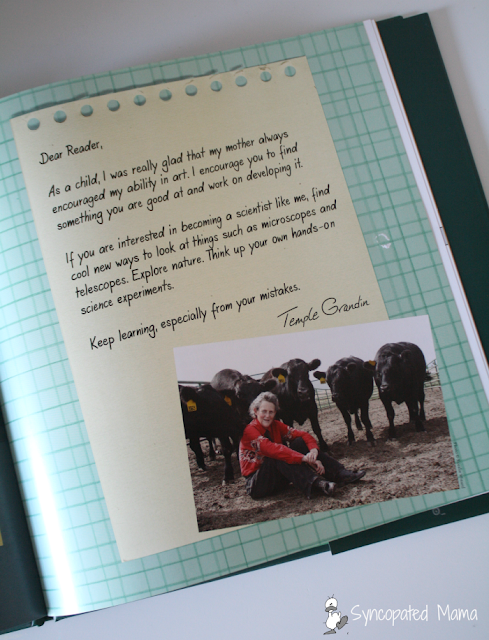 Dear Reader,
As a child, I was really glad that my mother always
encouraged my ability in art. I encourage you to find
something you are good at and work on developing it.
If you are interested in becoming a scientist like me, find
cool new ways to look at things such as microscopes and
telescopes. Explore nature. Think up your own hands-on
science experiments.
Keep learning, especially from your mistakes.
Temple Grandin
Syncopated Mama